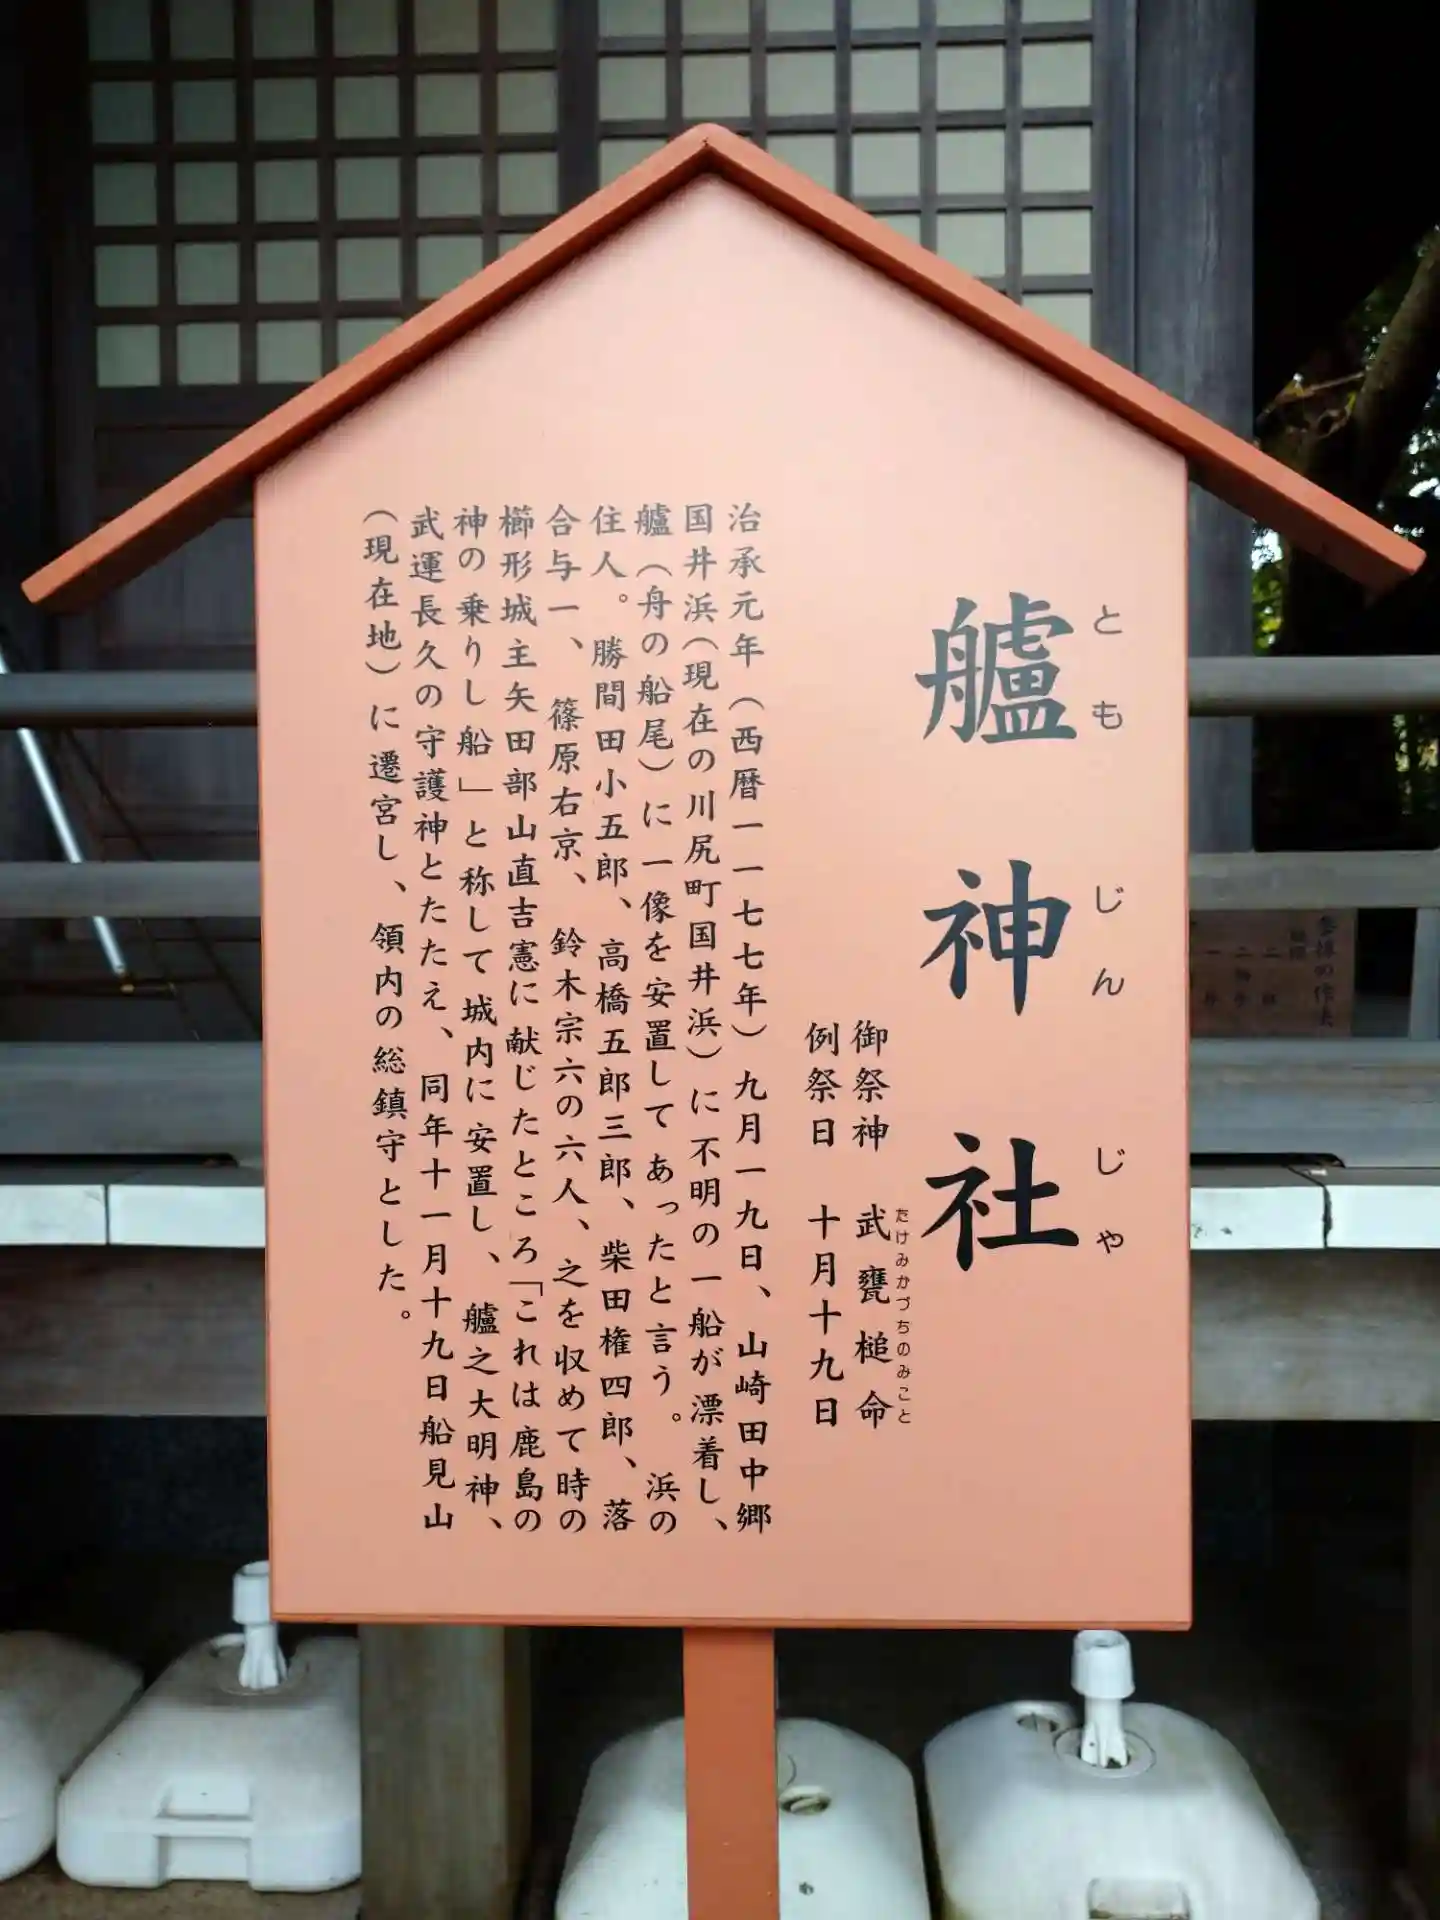 艫神社
ともじんじゃ
御祭神　武甕槌命
たけみかづちのみこと
例祭日　十月十九日
治承元年（西暦一一七七年）九月一九日、山崎田中郷
国井浜（現在の川尻町国井浜）に不明の一船が漂着し、
艫（舟の船尾）に一像を安置してあったと言う。浜の
住人。勝間田小五郎、高橋五郎三郎、柴田権四郎、落
合与一、篠原右京、鈴木宗六の六人、之を収めて時の
櫛形城主矢田部山直吉憲に献じたところ「これは鹿島の
神の乗りし船」と称して城内に安置し、艫之大明神、
武運長久の守護神とたたえ、同年十一月十九日船見山
（現在地）に遷宮し、領内の総鎮守とした。